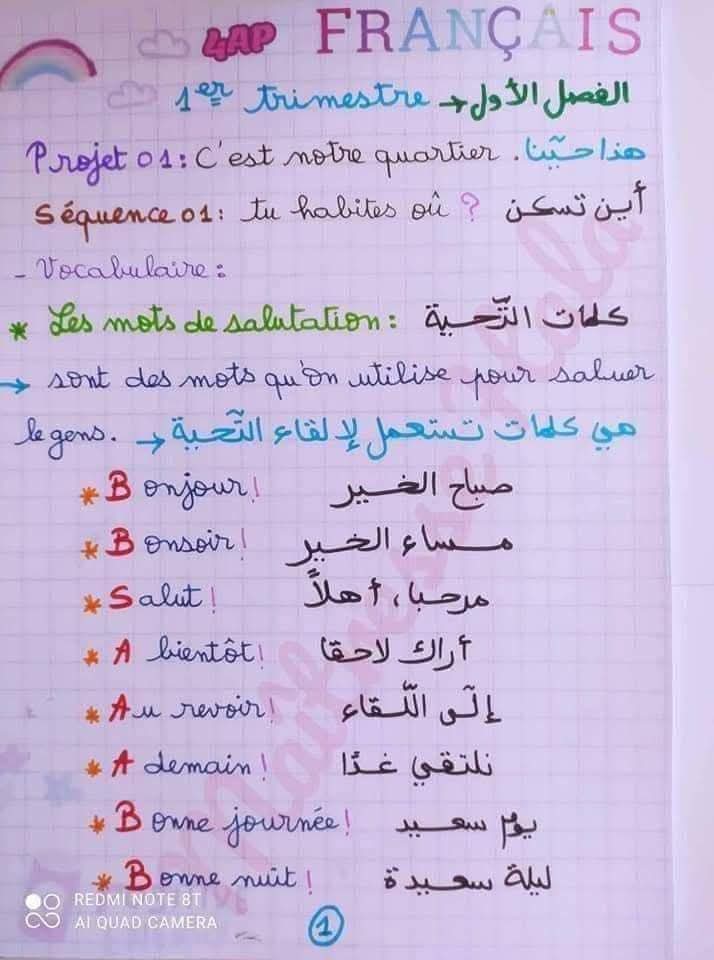 4AP FRANÇAIS
1er trimestre → الفصل الأول
Projet 01: C'est notre quartier. هذا حيّنا
Séquence 01: tu habites oû ? أين تسكن
- Vocabulaire:
* Les mots de salutation: كلمات التّحية
→ sont des mots qu'on utilise pour saluer
le gens. → هي كلمات تستعمل لإلقاء التّحية
* Bonjour! صباح الخير
* Bonsoir! مساء الخير
* Salut! مرحبا، أهلاً
* A bientôt! أراك لاحقا
* Au revoir! إلى اللّقاء
* A demain! نلتقي غدًا
* Bonne journée! يوم سعيد
* Bonne nuit! ليلة سعيدة
REDMI NOTE 8T
AI QUAD CAMERA
1